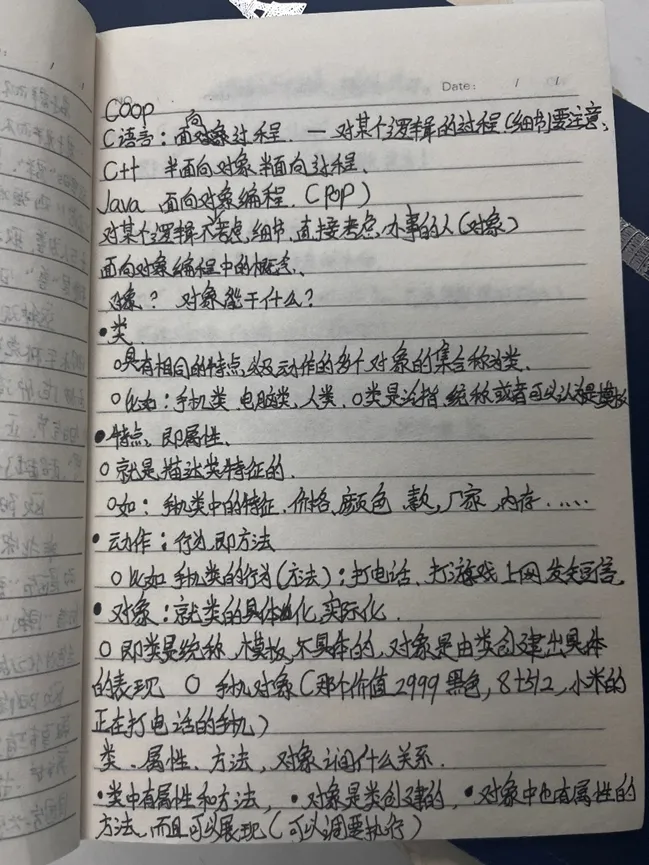 Date: / /
Coop
C语言：面向对象过程. 一 对某个逻辑的过程（细节）要注意.
C++ 半面向对象半面向过程.
Java 面向对象编程.（POP）
对某个逻辑不考虑,细节,直接考虑,办事的人（对象）
面向对象编程中的概念.
对象？ 对象能干什么？
•类.
o具有相同的特点以及动作的多个对象的集合称为类.
o比如：手机类.电脑类.人类. o类是泛指.统称或者可以认为是模板
•特点，即属性.
o就是,描述类特征的.
o如：手机类中的特征.价格.颜色 款,厂家,内存……
•动作：行为,即方法
o比如手机类的行为(方法)：打电话.打游戏上网 发短信.
•对象：就类的具体化,实际化.
o即类是统称,模板,不具体的,对象是由类创建出具体
的表现 o 手机对象（那个价值2999黑色，8+512，小米的
正在打电话的手机）
类.属性.方法，对象之间什么关系.
•类中有属性和方法，•对象是类创建的，•对象中也有属性的
方法,而且可以展现（可以调要执行）